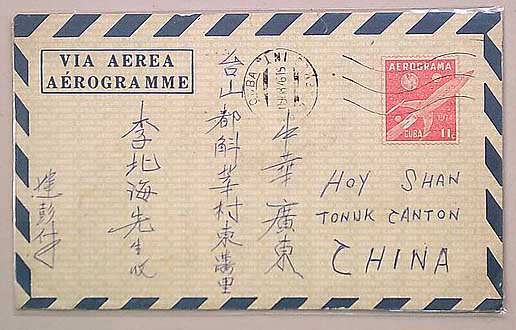 VIA AEREA
AÉROGRAMME
AEROGRAMA
CUBA 11c
CUBA
中華廣東
台山都斛莘村東萬里
李北海先生收
彭付
HOY SHAN
TONUK CANTON
CHINA